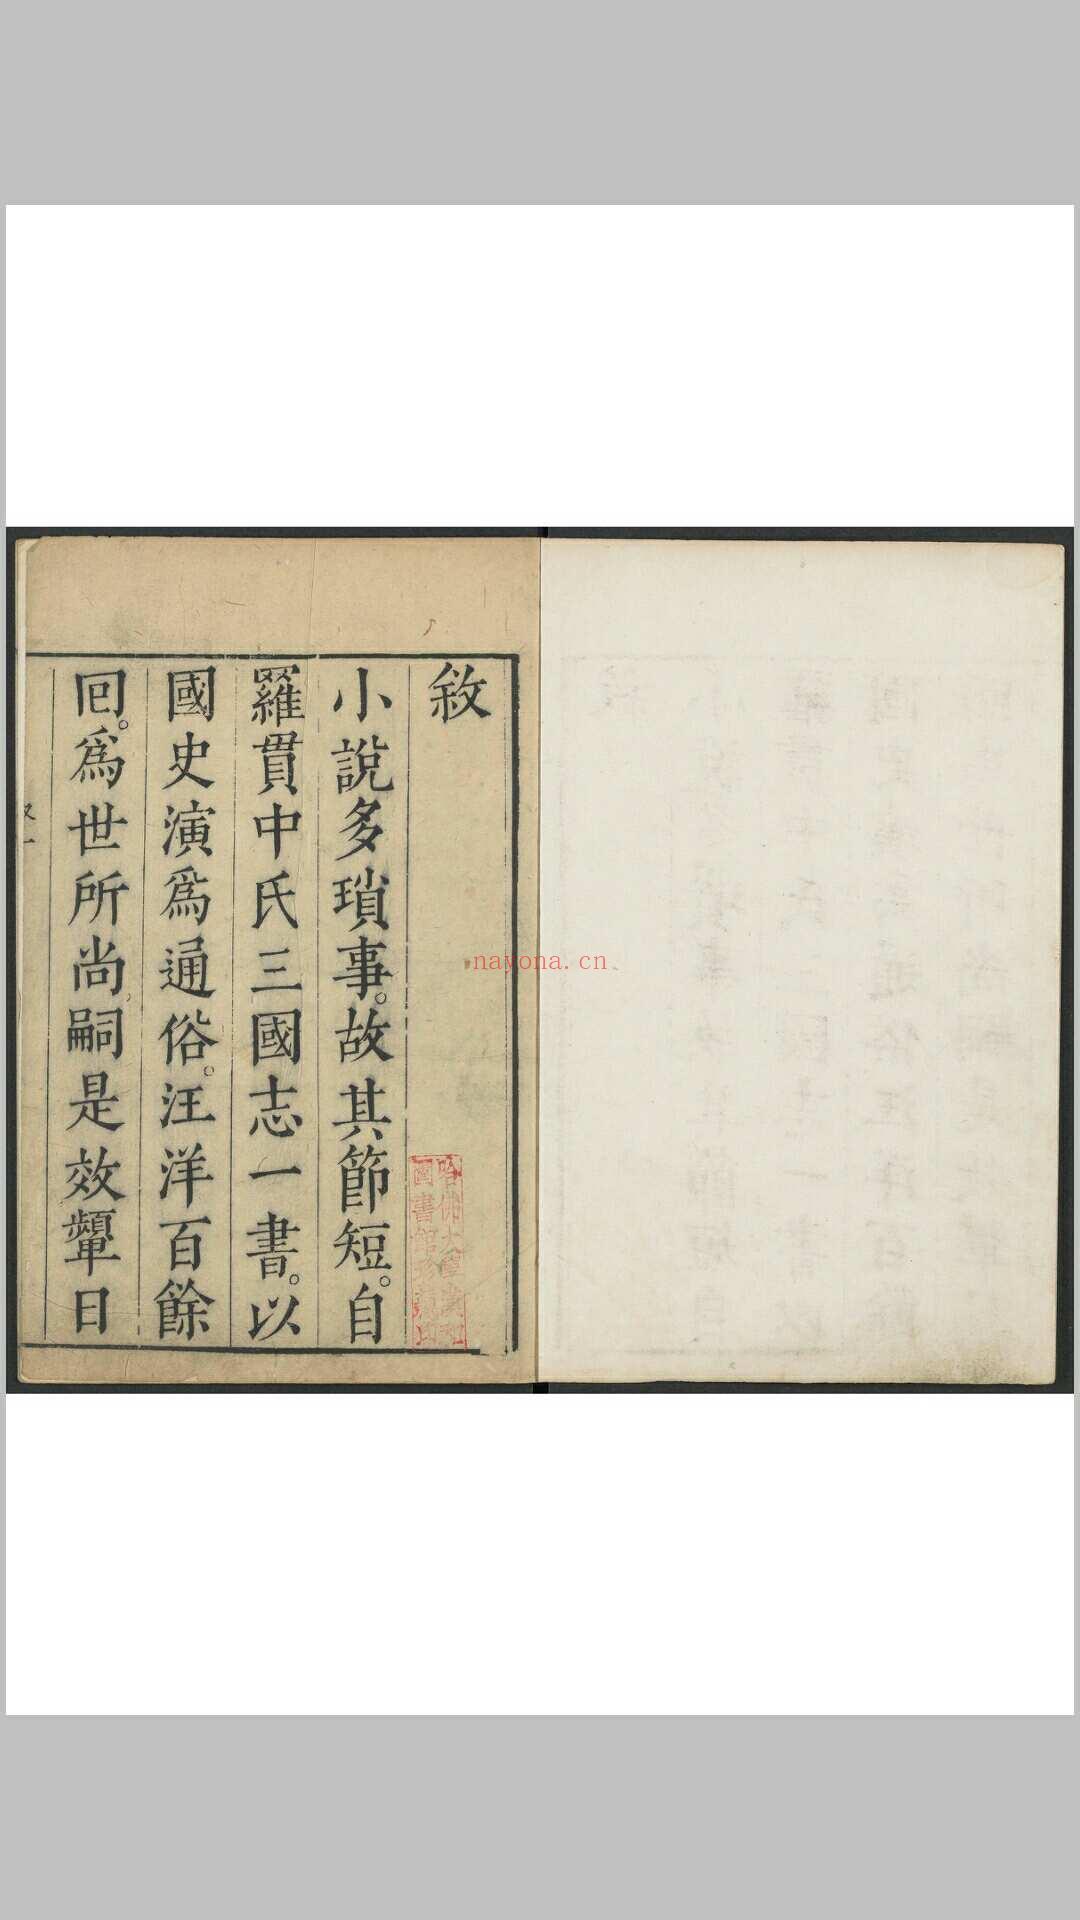 敘
小說多瑣事。故其節短。自
羅貫中氏三國志一書。以
國史演爲通俗。汪洋百餘
回。爲世所尚。嗣是效顰日
哈佛大學漢和
圖書館珍藏印
nayona.cn